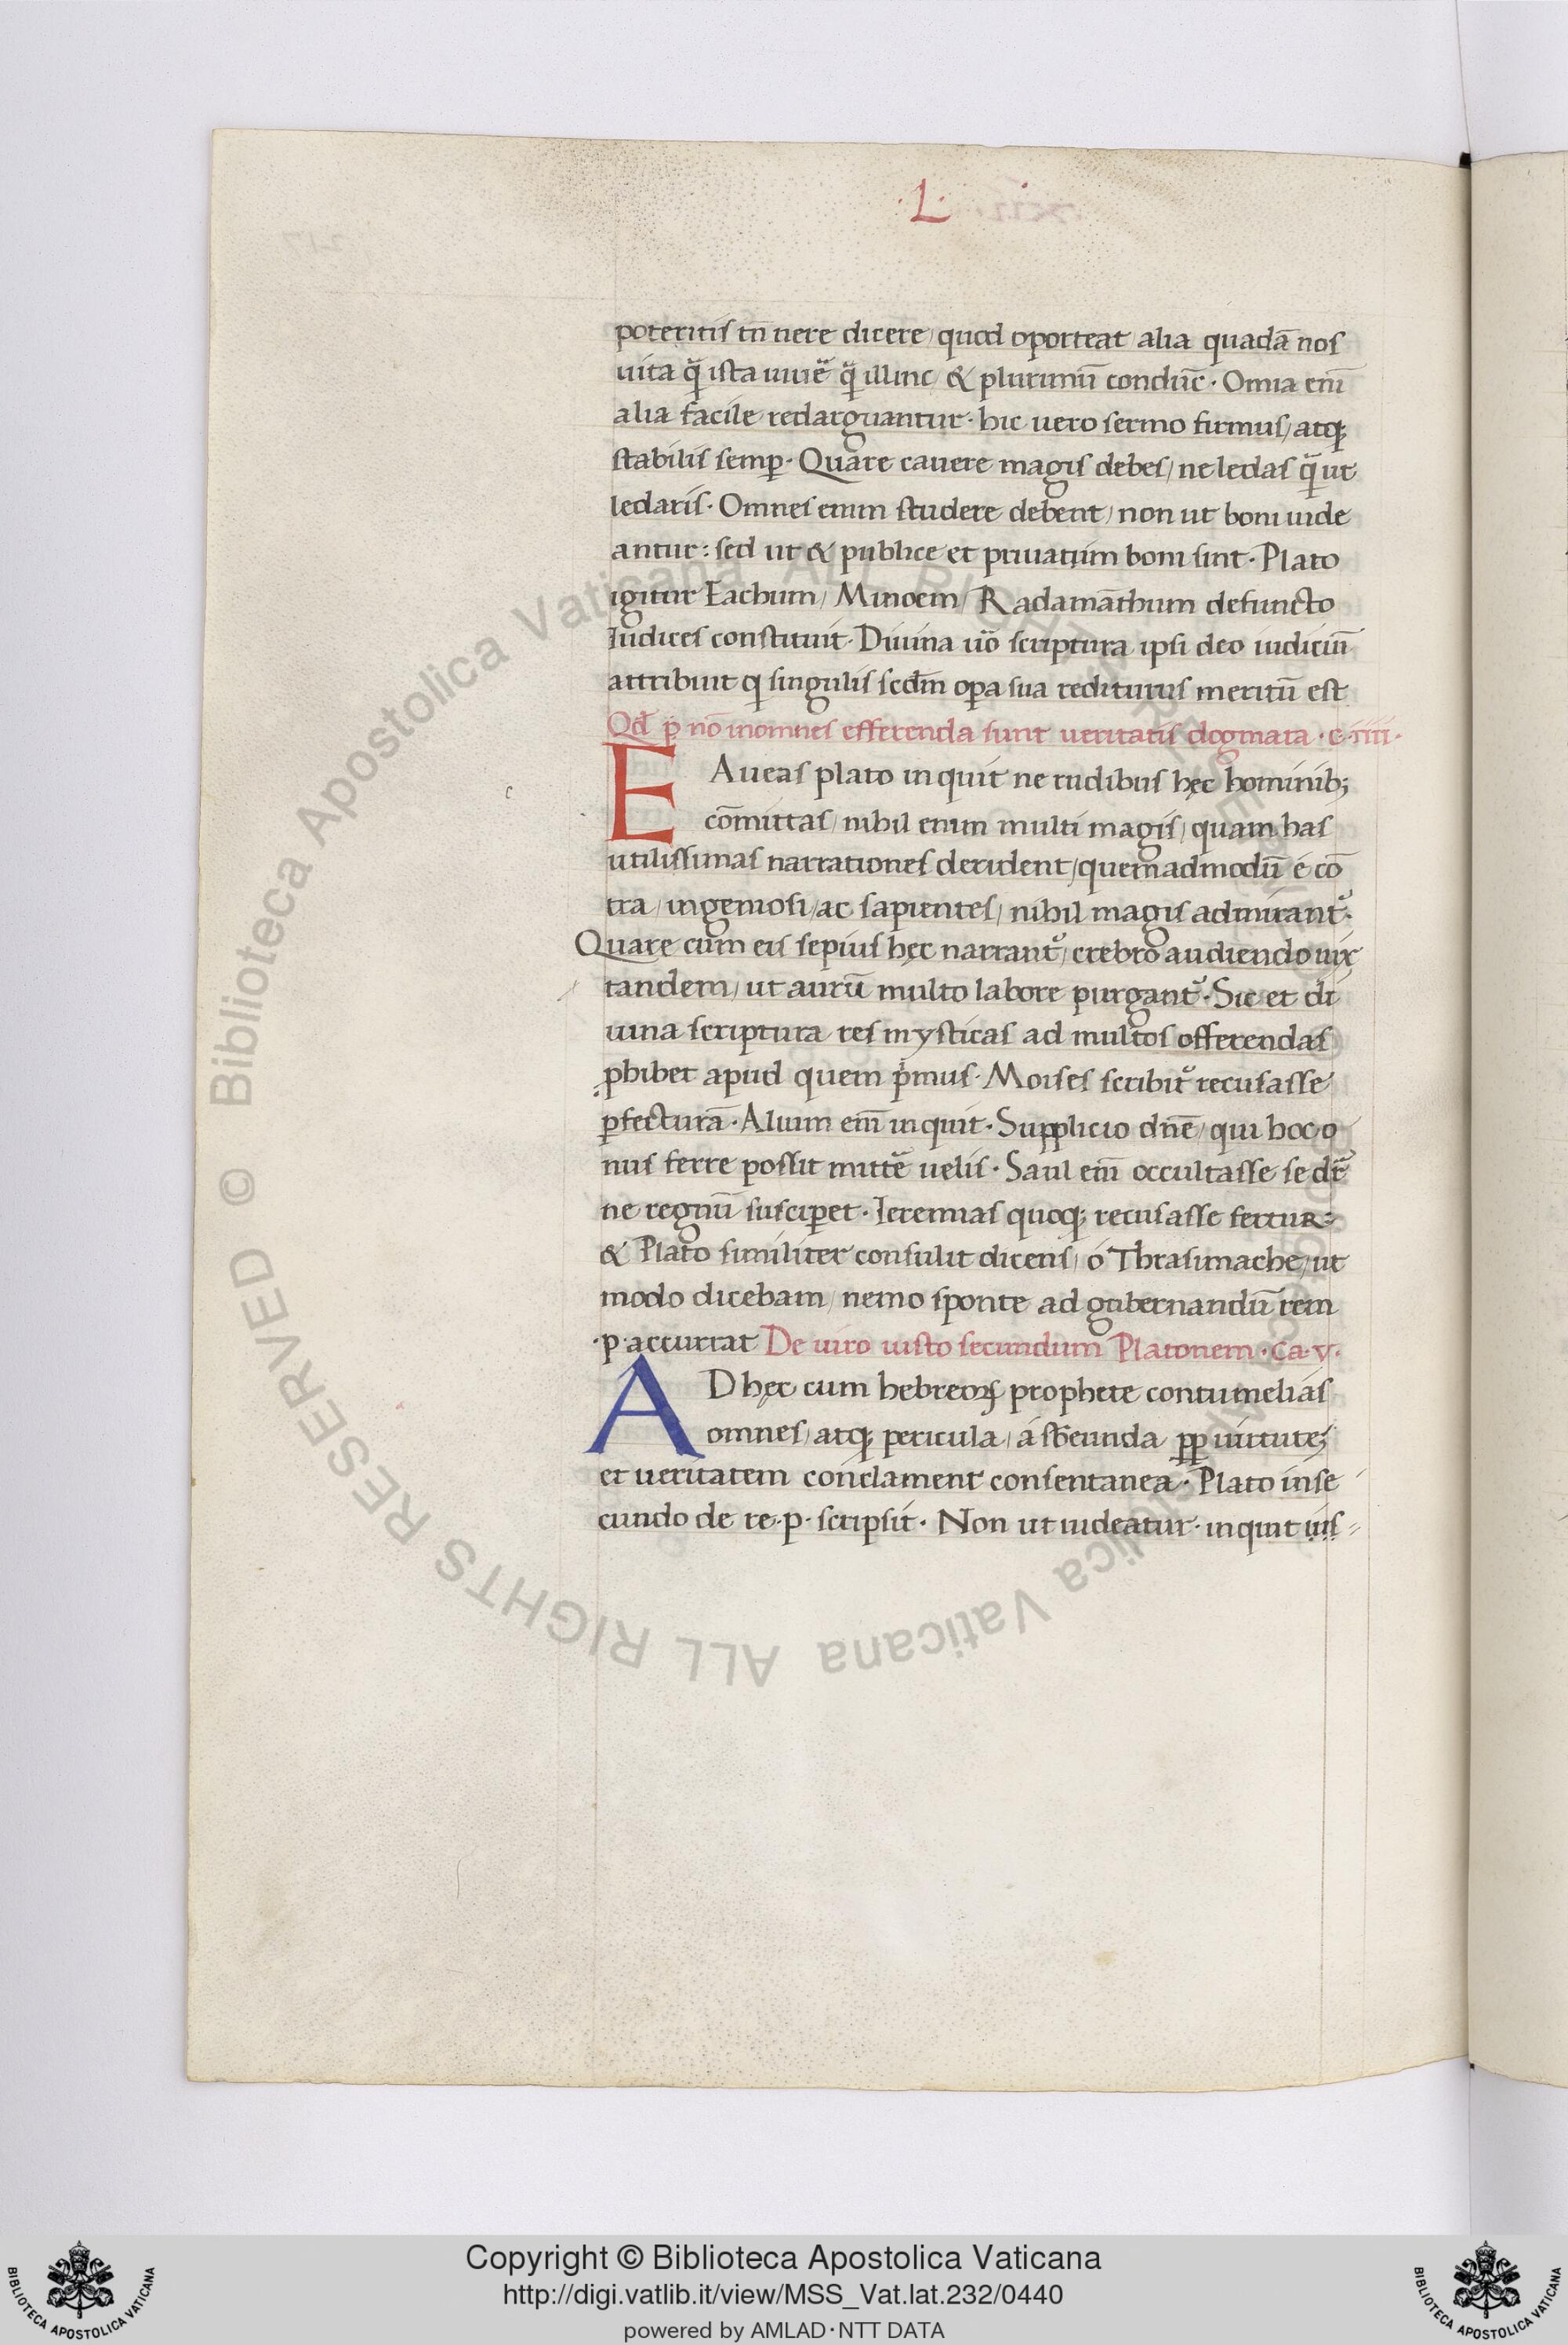 ·L·
poteritis tñ uere dicere/ quod oporteat alia quadā nos
uita q̃ ista uiuẽ q̃ illinc/ & plurimũ conduc̃. Omnia em̃
alia facile redarguantur. hic uero sermo firmus/ atq;
stabilis semp. Quare cauere magis debes/ ne ledas q̃ ut
ledaris. Omnes enim studere debent/ non ut boni uide
antur: sed ut & publice et priuatim boni sint. Plato
igitur Eachum/ Minoem/ Radamāthum defuncto
Iudices constituit. Diuina uõ scriptura ipsi deo iudiciũ
attribuit q singulis scdm opa sua rediturus meritũ est
Qd p nō inomnes efferenda sunt ueritatis dogmata .c. iiii.
E Aueas plato inquit ne rudibus hęc hominib;
c
cōmittas/ nihil enim multi magis/ quam has
utilissimas narrationes derident/ quemadmodũ é cō
tra/ ingeniosi/ ac sapientes/ nihil magis admirant̃.
Quare cum eis sepius hęc narrant̃/ crebro audiendo uix
tandem/ ut aurũ multo labore purgant̃. Sic et di
uina scriptura res mysticas ad multos offerendas
phibet apud quem pmus. Moises scribit̃ recusasse
pfecturā. Alium em̃ inquit. Supplicio dñe/ qui hoc o
nus ferre possit mittẽ uelis. Saul em̃ occultasse se dr̃
ne regnũ susciperet. Ieremias quoq; recusasse fertur:
& Plato similiter consulit dicens/ ó Thrasimache/ ut
modo dicebam/ nemo sponte ad gubernandũ rem
.p. accurrat De uiro iusto secundum Platonem. Ca. v.
A D hęc cum hebreoꝝ prophete contumelias
omnes/ atq; pericula/ á sb̃eunda pp uirtutez
et ueritatem conclament consentanea. Plato inse
cundo de re.p. scripsit. Non ut uideatur. inquit ius=
Biblioteca Apostolica Vaticana ALL RIGHTS RESERVED ©
Copyright © Biblioteca Apostolica Vaticana
http://digi.vatlib.it/view/MSS_Vat.lat.232/0440
powered by AMLAD·NTT DATA
BIBLIOTECA APOSTOLICA VATICANA
BIBLIOTECA APOSTOLICA VATICANA